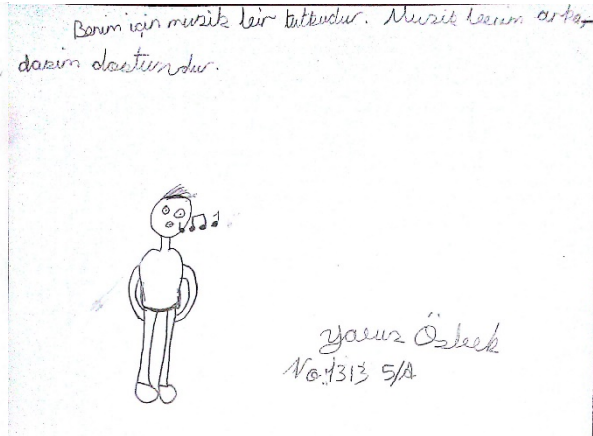 Benim için muzik bir tutkudur. Muzik benim arka-
daşim dostumdur.
Yavuz Özbek
No:1313 5/A